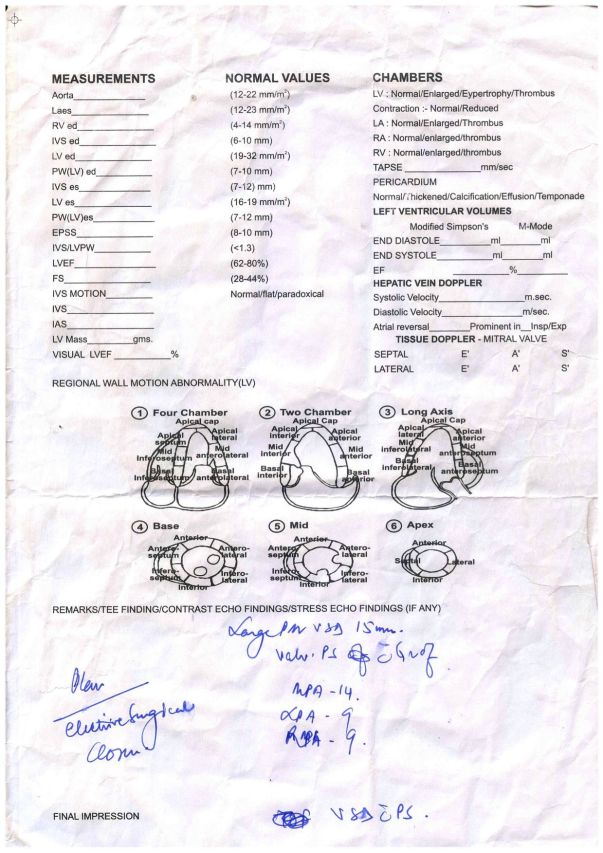 MEASUREMENTS NORMAL VALUES CHAMBERS
Aorta (12-22 mm/m²) LV : Normal/Enlarged/Eypertrophy/Thrombus
Laes (12-23 mm/m²) Contraction :- Normal/Reduced
RV ed (4-14 mm/m²) LA : Normal/Enlarged/Thrombus
IVS ed (6-10 mm) RA : Normal/enlarged/thrombus
LV ed (19-32 mm/m²) RV : Normal/enlarged/thrombus
PW(LV) ed (7-10 mm) TAPSE mm/sec
IVS es (7-12) mm) PERICARDIUM
LV es (16-19 mm/m²) Normal/Thickened/Calcification/Effusion/Temponade
PW(LV)es (7-12 mm) LEFT VENTRICULAR VOLUMES
EPSS (8-10 mm) Modified Simpson's M-Mode
IVS/LVPW (<1.3) END DIASTOLE ml ml
LVEF (62-80%) END SYSTOLE ml ml
FS (28-44%) EF %
IVS MOTION Normal/flat/paradoxical HEPATIC VEIN DOPPLER
IVS Systolic Velocity m.sec.
IAS Diastolic Velocity m/sec.
LV Mass gms. Atrial reversal Prominent in Insp/Exp
VISUAL LVEF % TISSUE DOPPLER - MITRAL VALVE
SEPTAL E' A' S'
LATERAL E' A' S'
REGIONAL WALL MOTION ABNORMALITY(LV)
1 Four Chamber 2 Two Chamber 3 Long Axis
Apical cap Apical cap Apical Cap
Apical septum Apical lateral Apical interior Apical anterior Apical lateral Apical anterior
Mid Inferoseptum Mid anterolateral Mid interior Mid anterior Mid inferolateral Mid anteroseptum
Basal Inferoseptum Basal anterolateral Basal interior Basal anterior Basal inferolateral Basal anteroseptum
4 Base 5 Mid 6 Apex
Anterior Anterior Anterior
Antero-septum Antero-lateral Antero-septum Antero-lateral Septal Lateral
Infero-septum Infero-lateral Infero-septum Infero-lateral
Interior Interior Interior
REMARKS/TEE FINDING/CONTRAST ECHO FINDINGS/STRESS ECHO FINDINGS (IF ANY)
Large PM VSD 15mm.
Valv. PS
MPA - 14.
LPA - 9
RPA - 9.
Plan
Elective Surgical
Closure
FINAL IMPRESSION VSD c̄ PS.